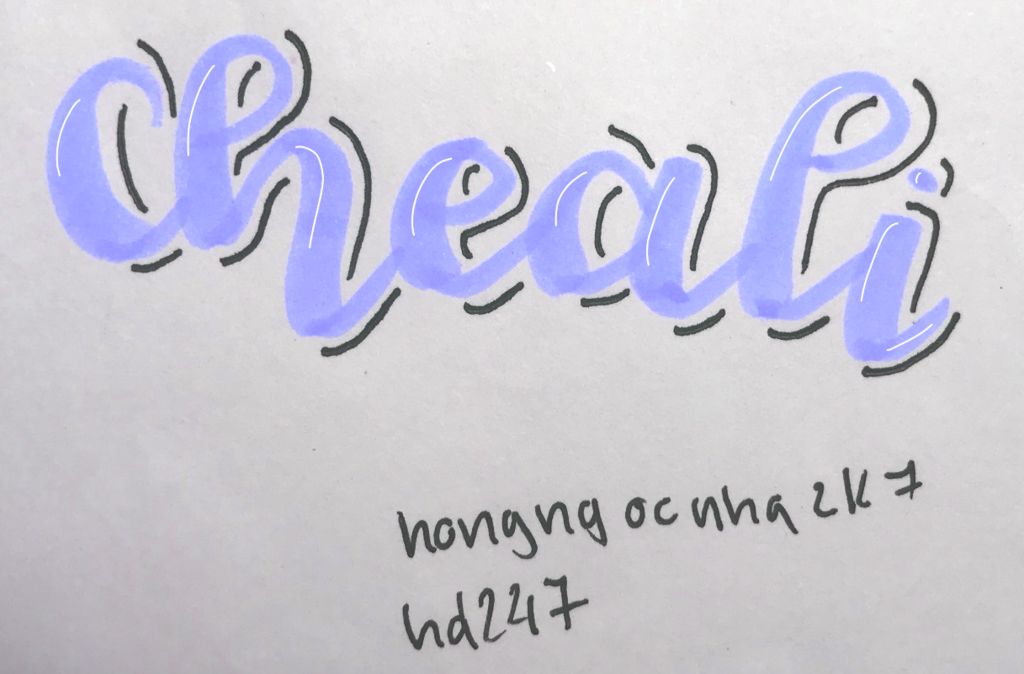 Cheali
hongngocnha2k7
hd247